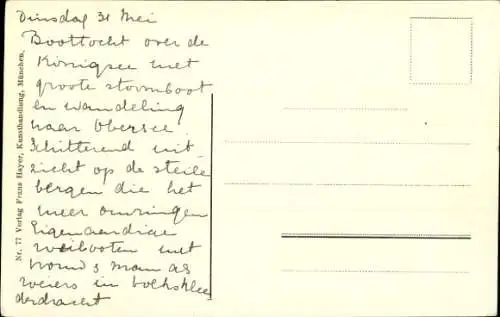 Dinsdag 31 Mei
Boottocht over de
Königsee met
groote stoomboot
en wandeling
naar Obersee.
Schitterend uit-
zicht op de steile
bergen die het
meer omringen
Eigenaardige
met
man als
roeiers in volksklee
derdracht
Nr. 77 Verlag Franz Hayer, Kunsthandlung, München.